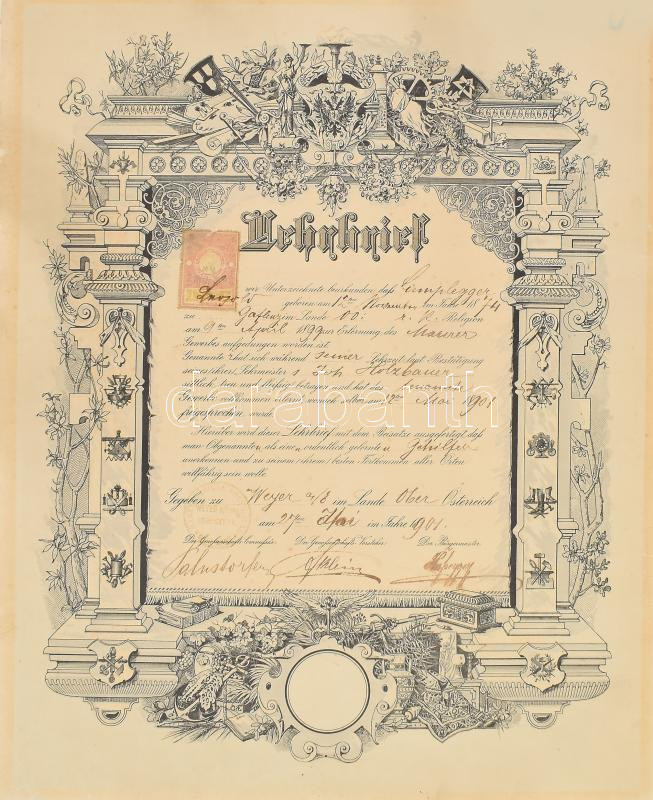 Lehrbrief
wir Unterzeichnete beurkunden, daß Sumplegger
Leopold geboren am 1ten November im Jahre 1884
zu Gaflenz im Lande OÖ. r. k. Religion
am 9ten April 1899 zur Erlernung des Maurer
Gewerbes aufgedungen worden ist.
Genannter hat sich während seiner Lehrzeit laut Bestätigung
Lehrmeisters Joh Holzbauer
sittlich, treu und fleißig betragen und hat das
Gewerbe vollkommen erlernt, wonach selber am Mai 1901
freigesprochen wurde.
Hierüber wird dieser Lehrbrief mit dem Beisatze ausgefertigt, daß
man Obgenannten als einen ordentlich gelernten Gehilfen
anerkennen und zu seinem ehrsamen besten Fortkommen aller Orten
willfährig sein wolle.
Gegeben zu Weyer a/E im Lande Ober Österreich
am 27ten Mai im Jahre 1901.
Der Genossenschafts-Commissär. Der Genossenschafts-Vorsteher. Der Bürgermeister.
darabanth